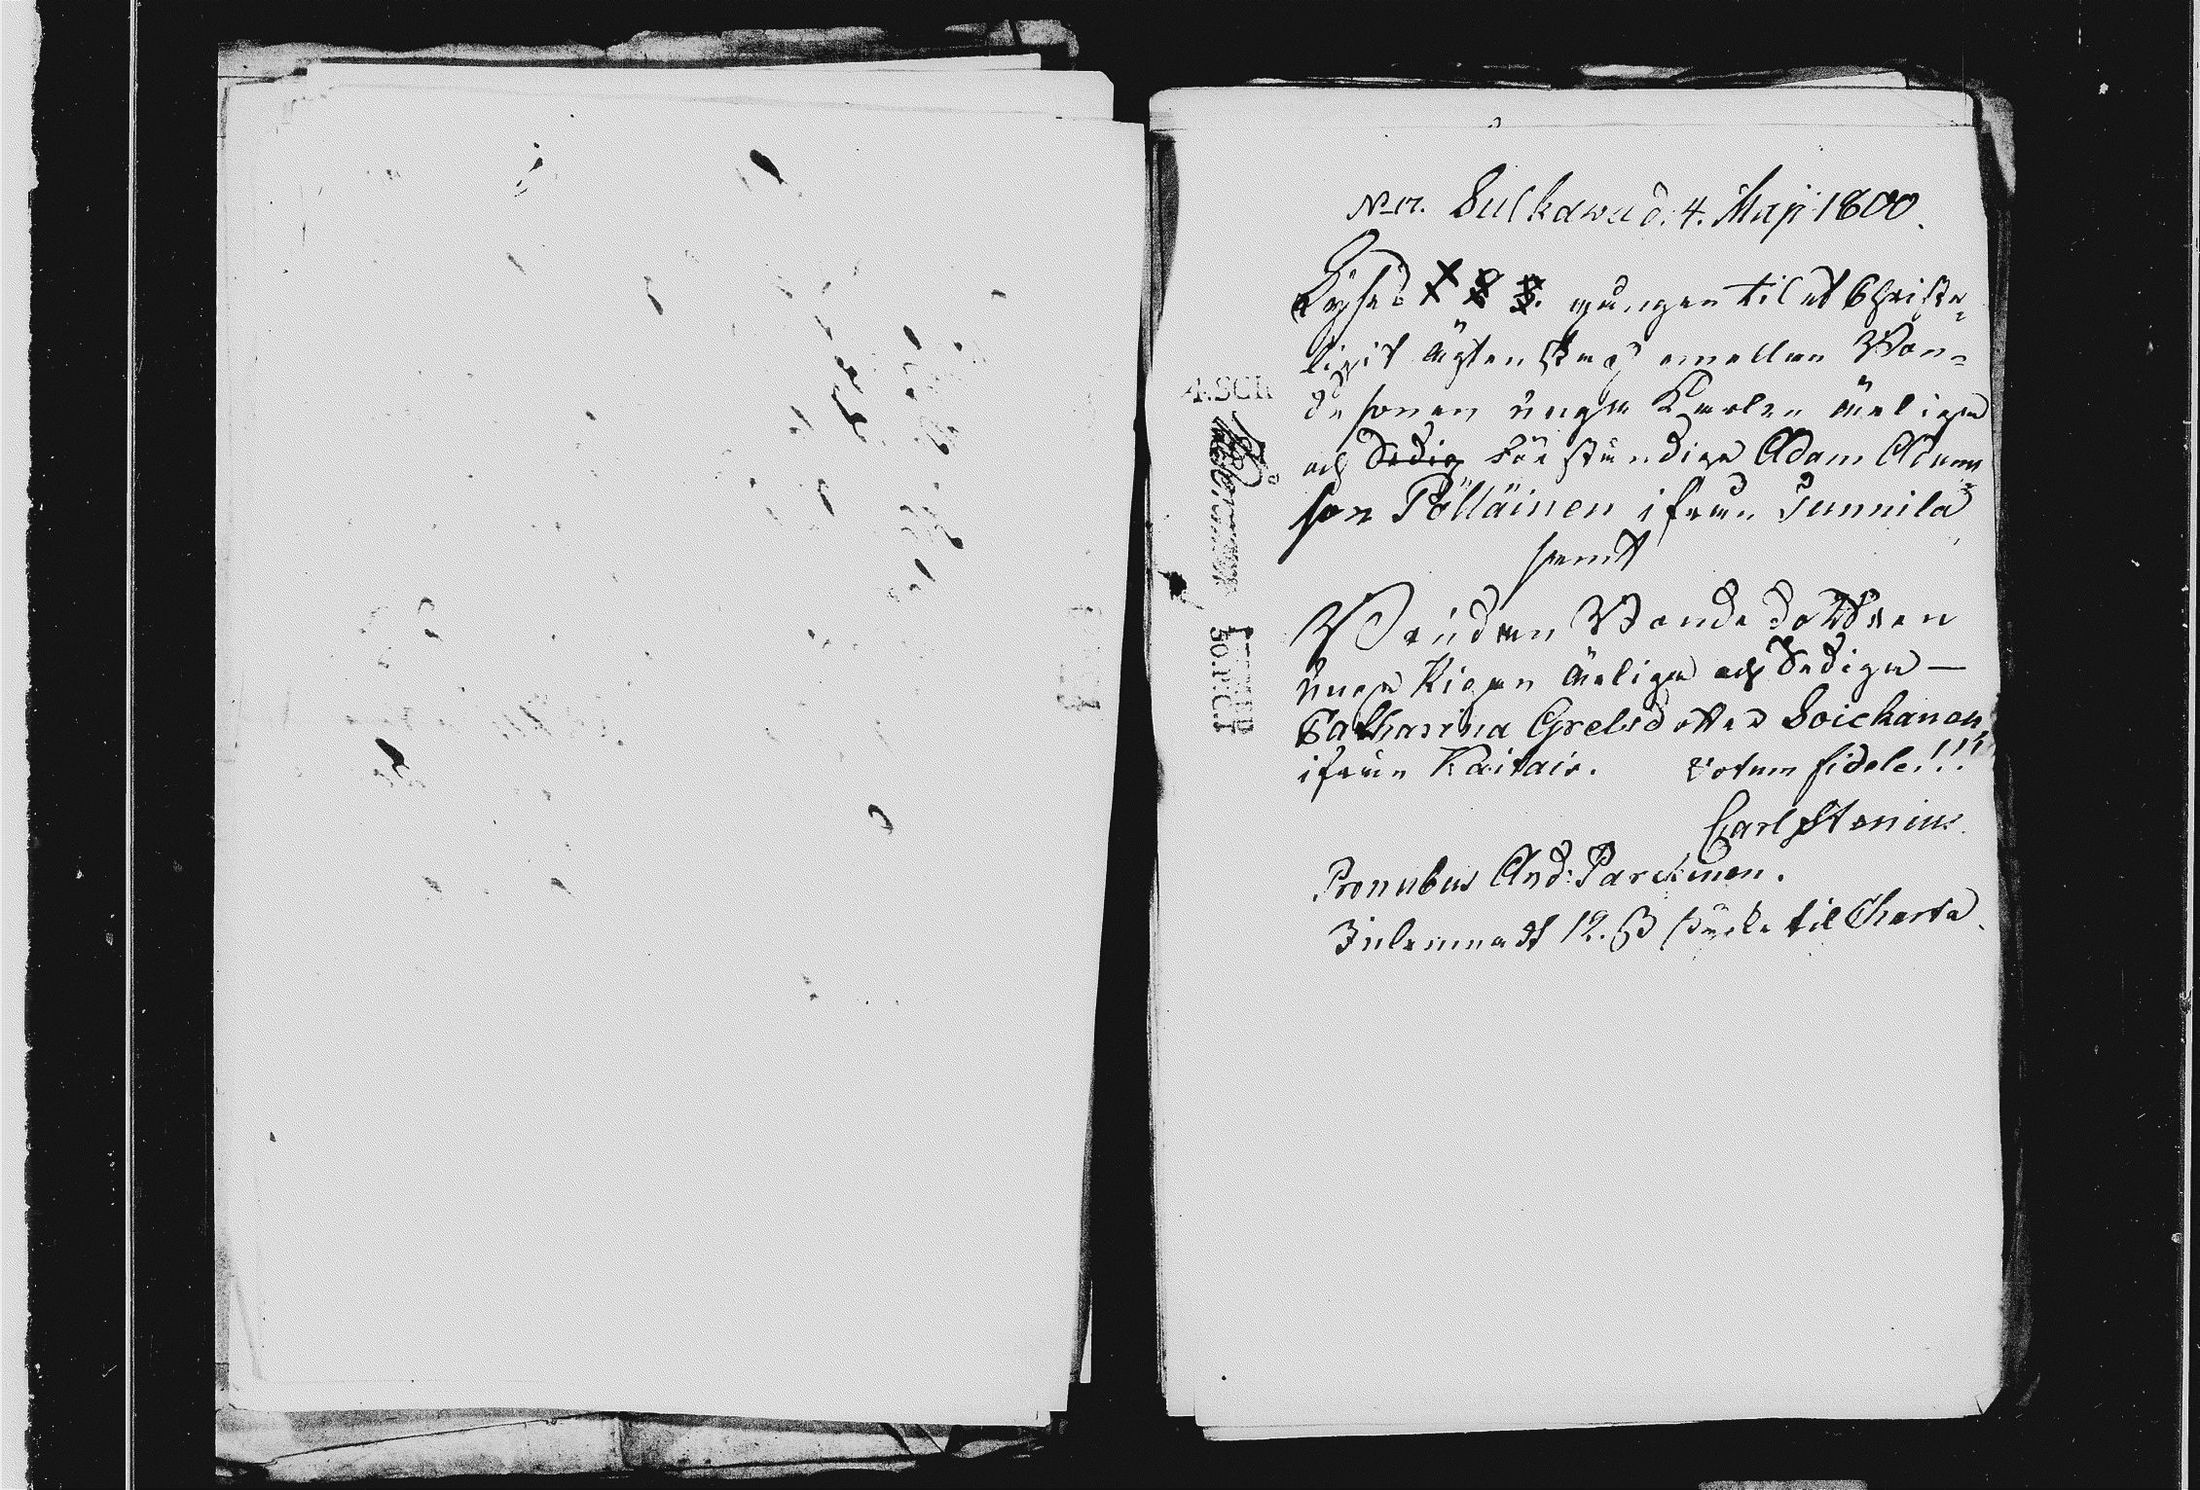 Sulkawa d. 4. Maji 1800.
Lyses 1 2 3. gången til et Christe-
ligit ägtenskap emellan Bon-
de sonen unge Karlen ärlige
och Sedig förståndige Adam Adams
son Pölläinen ifrån Tunnila
samt
Bruden Bonde dottren
unga Pigan ärliga och Sediga —
Catharina Grelsdotter Soickanen
ifrån Kaitais. Votum fidele!!!
Carl Stenius.
Pronubus And: Parckinen.
Inlemnadt 12. ß til Charta.
4.SCH